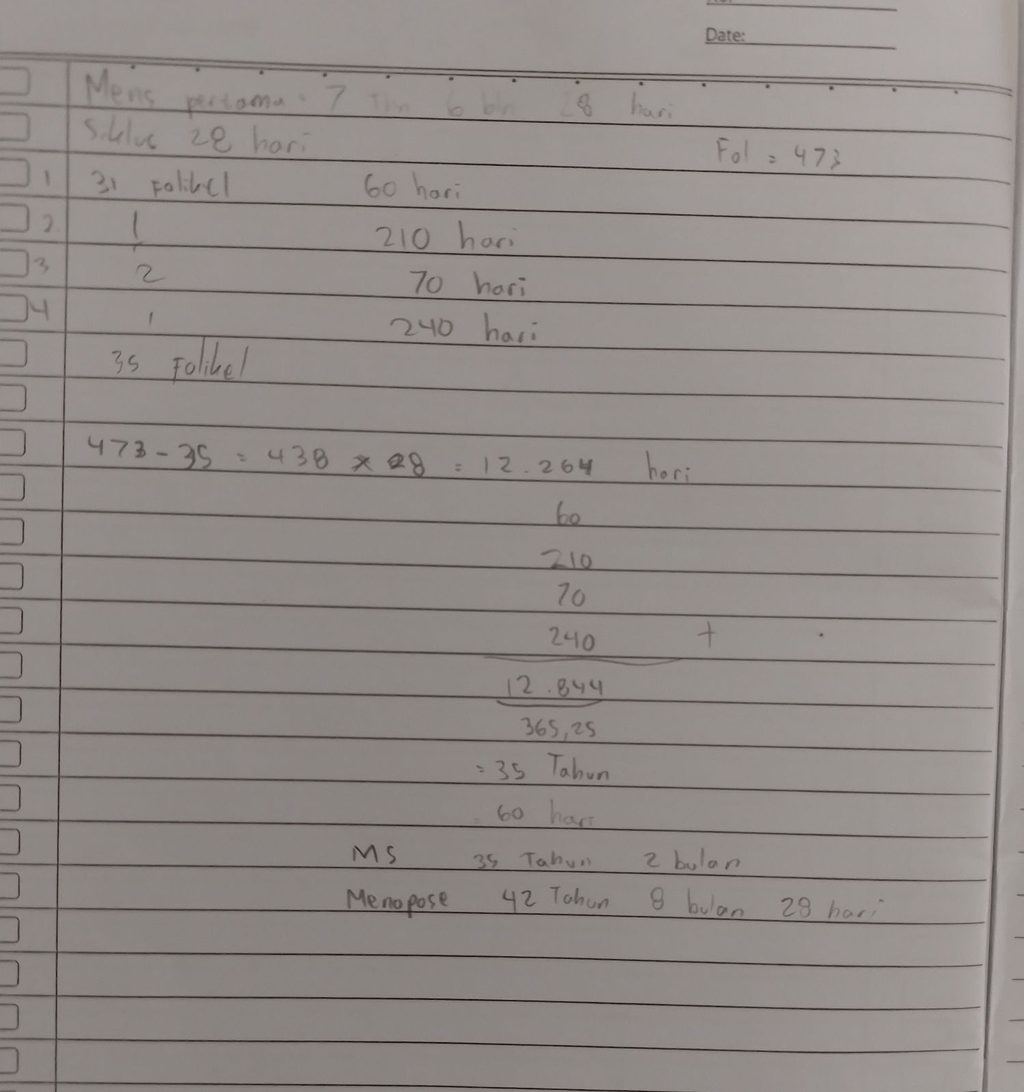 Date:
Mens pertama : 7 Thn 6 bln 28 hari
Siklus 28 hari Fol = 473
1 31 Folikel 60 hari
2 1 210 hari
3 2 70 hari
4 1 240 hari
35 Folikel
473 - 35 = 438 x 28 = 12.264 hari
60
210
70
240 +
12.844
365,25
= 35 Tahun
= 60 hari
MS 35 Tahun 2 bulan
Menopose 42 Tahun 8 bulan 28 hari